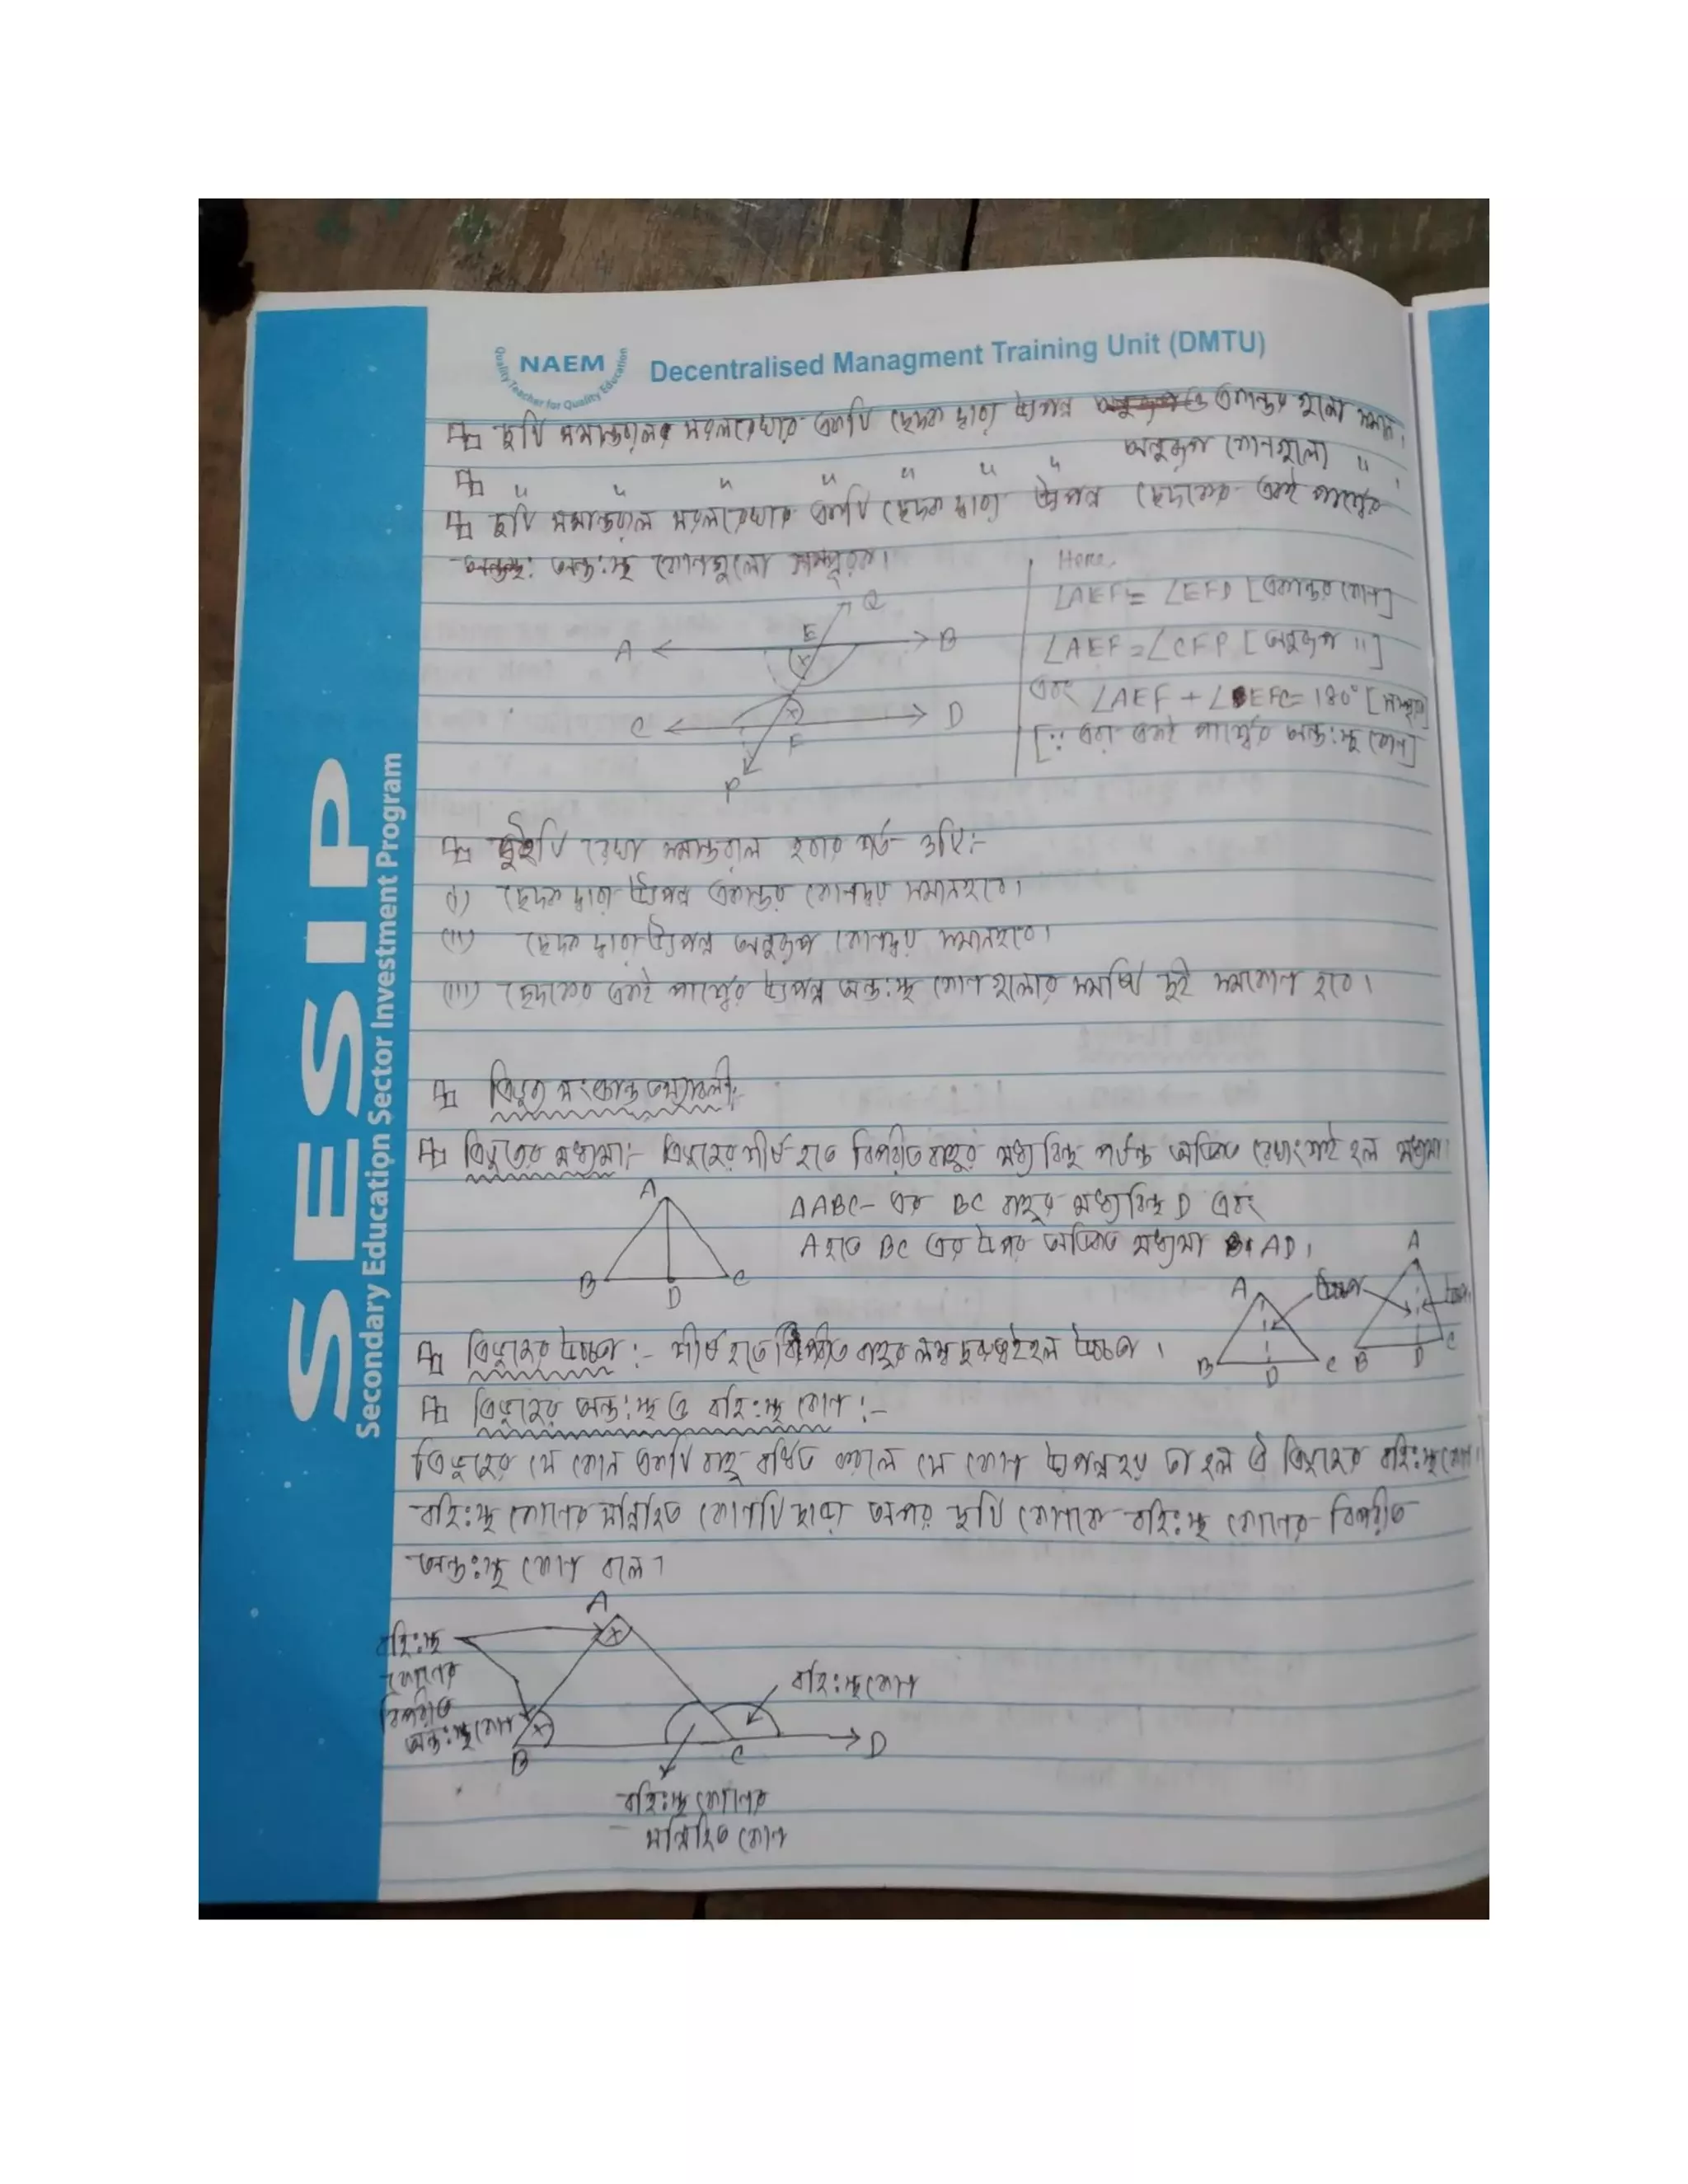 NAEM
Quality Teacher for Quality Education
Decentralised Managment Training Unit (DMTU)
SESIP
Secondary Education Sector Investment Program
দুটি সমান্তরাল সরলরেখার একটি ছেদক দ্বারা উৎপন্ন একান্তর গুলো সমান।
" " " " " " " অনুরূপ কোণগুলো " ।
দুটি সমান্তরাল সরলরেখার একটি ছেদক দ্বারা উৎপন্ন ছেদকের একই পার্শ্বের
অন্ত:স্থ কোণগুলো সম্পূরক।
Here,
∠AEF = ∠EFD [একান্তর কোণ]
∠AEF = ∠CFP [অনুরূপ "]
এবং ∠AEF + ∠EFC = 180° [সম্পূরক]
[∵ এরা একই পার্শ্বের অন্ত:স্থ কোণ]
Q
E
A
B
C
D
F
P
দুইটি রেখা সমান্তরাল হবার শর্ত ৩টি:-
(i) ছেদক দ্বারা উৎপন্ন একান্তর কোণদ্বয় সমান হবে।
(ii) ছেদক দ্বারা উৎপন্ন অনুরূপ কোণদ্বয় সমান হবে।
(iii) ছেদকের একই পার্শ্বের উৎপন্ন অন্ত:স্থ কোণ গুলোর সমষ্টি দুই সমকোণ হবে।
ত্রিভুজ সংক্রান্ত তথ্যাবলী:-
ত্রিভুজের মধ্যমা:- ত্রিভুজের শীর্ষ হতে বিপরীত বাহুর মধ্য বিন্দু পর্যন্ত অঙ্কিত রেখাংশই হল মধ্যমা।
A
B
D
C
ΔABC- এর BC বাহুর মধ্যবিন্দু D এবং
A হতে BC এর উপর অঙ্কিত মধ্যমা AD।
ত্রিভুজের উচ্চতা :- শীর্ষ হতে বিপরীত বাহুর লম্ব দূরত্বই হল উচ্চতা।
A
B
D
C
উচ্চতা
A
B
D
C
ত্রিভুজের অন্ত:স্থ ও বহি:স্থ কোণ :-
ত্রিভুজের যে কোন একটি বাহু বর্ধিত করলে যে কোণ উৎপন্ন হয় তা হল ঐ ত্রিভুজের বহি:স্থ কোণ।
বহি:স্থ কোণের সন্নিহিত কোণটি ছাড়া অপর দুটি কোণকে বহি:স্থ কোণের বিপরীত
অন্ত:স্থ কোণ বলে।
A
বহি:স্থ
কোণের
বিপরীত
অন্ত:স্থ কোণ
বহি:স্থ কোণ
B
C
D
বহি:স্থ কোণের
সন্নিহিত কোণ